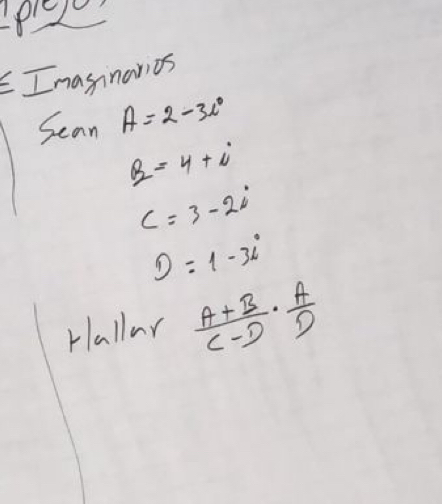 Imaginarios
Sean A = 2 - 3i
B = 4 + i
C = 3 - 2i
D = 1 - 3i
Hallar \frac{A+B}{C-D} \cdot \frac{A}{D}